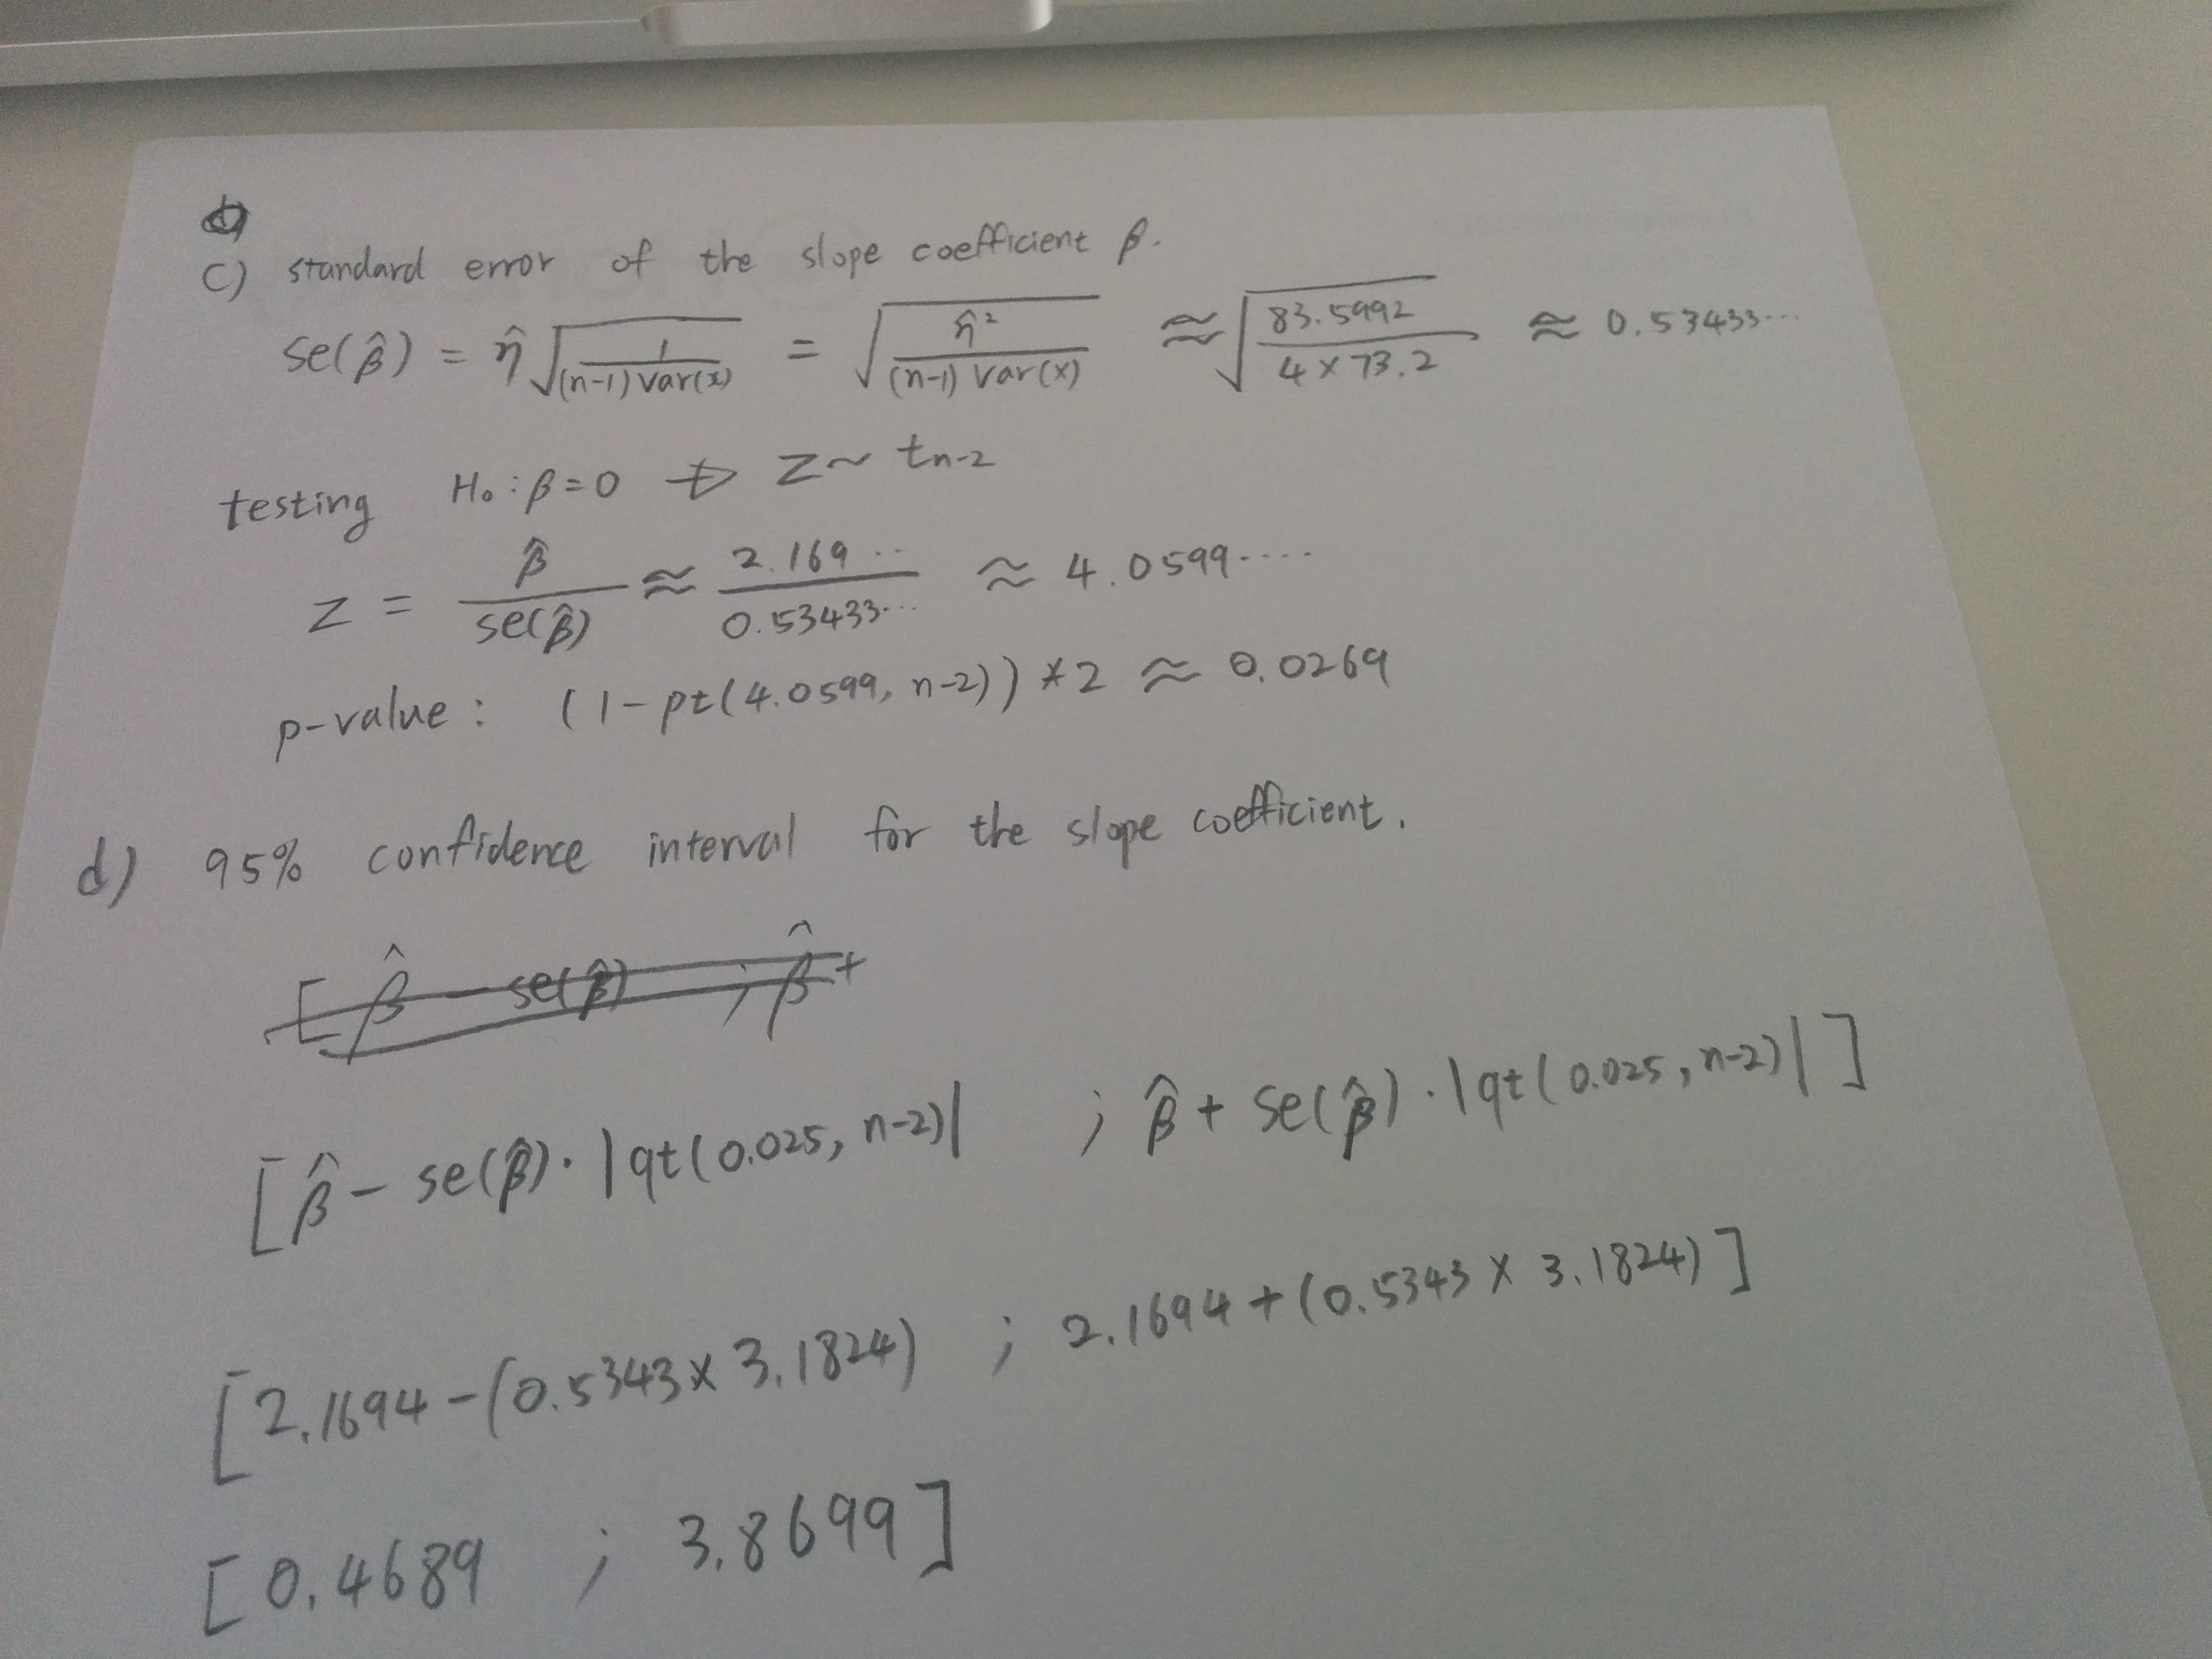 c) standard error of the slope coefficient β.
se(β̂) = η̂ √(1/((n-1) var(x))) = √(η̂²/((n-1) var(x))) ≈ √(83.5992/(4 × 73.2)) ≈ 0.53433...
testing H₀ : β = 0 → Z ~ tn-2
Z = β̂/se(β̂) ≈ 2.169.../0.53433... ≈ 4.0599....
p-value : (1 - pt(4.0599, n-2)) * 2 ≈ 0.0269
d) 95% confidence interval for the slope coefficient.
[β̂ - se(β̂) ; β̂ +
[β̂ - se(β̂) · |qt(0.025, n-2)| ; β̂ + se(β̂) · |qt(0.025, n-2)| ]
[2.1694 - (0.5343 × 3.1824) ; 2.1694 + (0.5343 × 3.1824) ]
[0.4689 ; 3.8699 ]